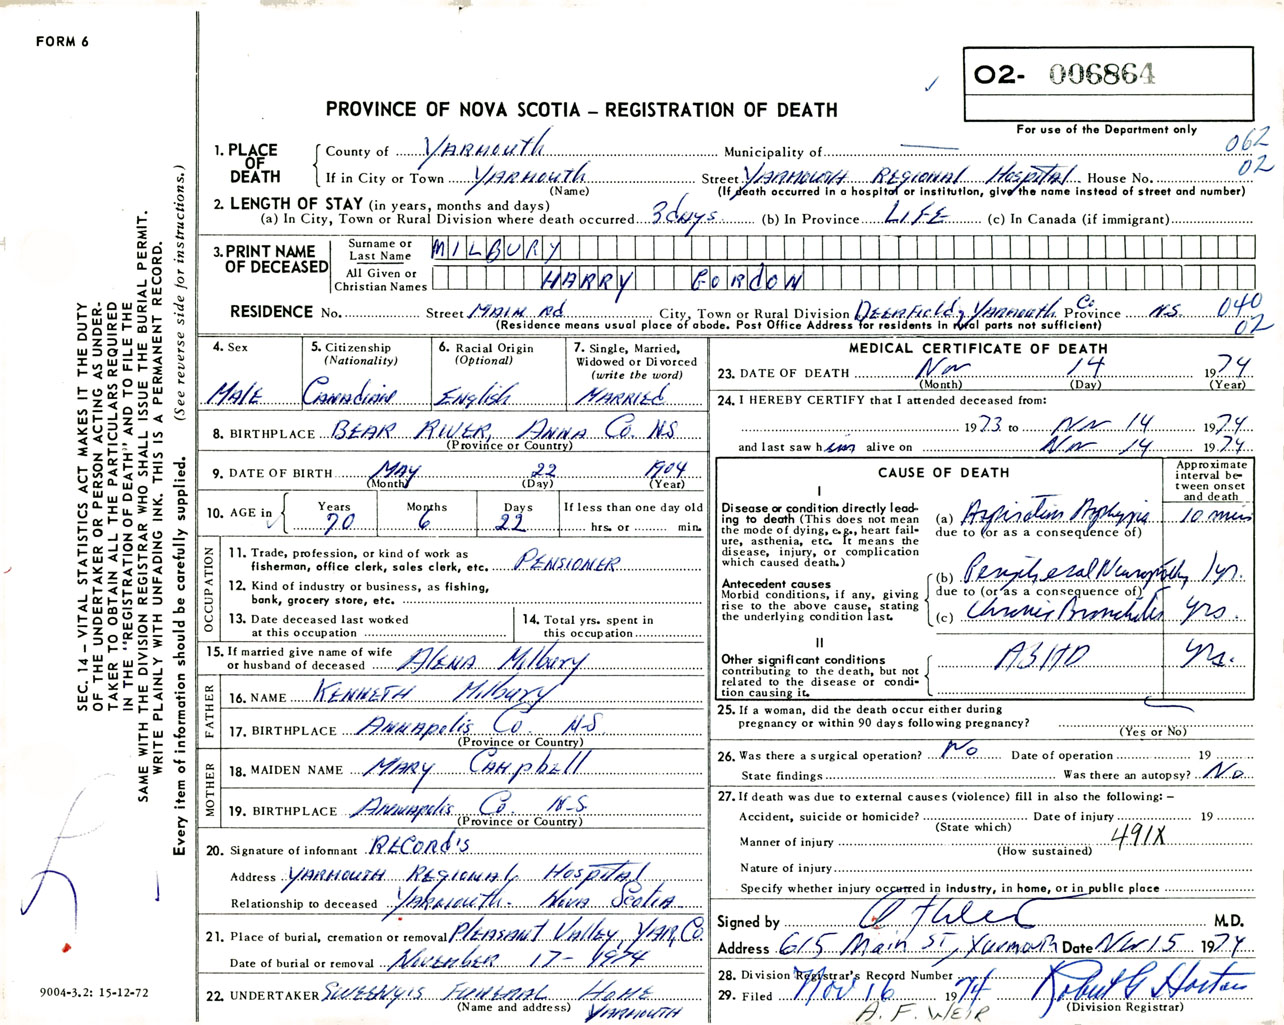 FORM 6
O2- 006864
PROVINCE OF NOVA SCOTIA – REGISTRATION OF DEATH
For use of the Department only
062
02
1. PLACE OF DEATH
County of Yarmouth Municipality of —
If in City or Town Yarmouth Street Yarmouth Regional Hospital House No.
(Name) (If death occurred in a hospital or institution, give the name instead of street and number)
2. LENGTH OF STAY (in years, months and days)
(a) In City, Town or Rural Division where death occurred 3 days (b) In Province LIFE (c) In Canada (if immigrant)
3. PRINT NAME OF DECEASED
Surname or Last Name MILBURY
All Given or Christian Names HARRY GORDON
RESIDENCE No. Street Main Rd City, Town or Rural Division Deerfield, Yarmouth Co Province N.S. 040
02
(Residence means usual place of abode. Post Office Address for residents in rural parts not sufficient)
4. Sex
Male
5. Citizenship
(Nationality)
Canadian
6. Racial Origin
(Optional)
English
7. Single, Married,
Widowed or Divorced
(write the word)
Married
8. BIRTHPLACE Bear River, Anna Co. NS
(Province or Country)
9. DATE OF BIRTH May 22 1904
(Month) (Day) (Year)
10. AGE in Years Months Days If less than one day old
70 6 22 hrs. or min.
OCCUPATION
11. Trade, profession, or kind of work as
fisherman, office clerk, sales clerk, etc. Pensioner
12. Kind of industry or business, as fishing,
bank, grocery store, etc.
13. Date deceased last worked
at this occupation
14. Total yrs. spent in
this occupation
15. If married give name of wife
or husband of deceased Alena Milbury
FATHER
16. NAME Kenneth Milbury
17. BIRTHPLACE Annapolis Co. N-S.
(Province or Country)
MOTHER
18. MAIDEN NAME Mary Campbell
19. BIRTHPLACE Annapolis Co. N-S.
(Province or Country)
20. Signature of informant Record's
Address Yarmouth Regional Hospital
Relationship to deceased Yarmouth- Nova Scotia
21. Place of burial, cremation or removal Pleasant Valley, Yar. Co.
Date of burial or removal November 17- 1974
22. UNDERTAKER Sweeny's Funeral Home
(Name and address) Yarmouth
MEDICAL CERTIFICATE OF DEATH
23. DATE OF DEATH Nov 14 1974
(Month) (Day) (Year)
24. I HEREBY CERTIFY that I attended deceased from:
1973 to Nov 14 1974
and last saw him alive on Nov 14 1974
CAUSE OF DEATH
Approximate
interval be-
tween onset
and death
I
Disease or condition directly lead-
ing to death (This does not mean
the mode of dying, e.g., heart fail-
ure, asthenia, etc. It means the
disease, injury, or complication
which caused death.)
(a) Aspiration Asphyxia 10 mins
due to (or as a consequence of)
Antecedent causes
Morbid conditions, if any, giving
rise to the above cause, stating
the underlying condition last.
(b) Peripheral Neuropathy 1 yr.
due to (or as a consequence of)
(c) Chronic Bronchitis yrs.
II
Other significant conditions
contributing to the death, but not
related to the disease or condi-
tion causing it.
ASHD yrs.
25. If a woman, did the death occur either during
pregnancy or within 90 days following pregnancy?
(Yes or No)
26. Was there a surgical operation? No Date of operation 19
State findings Was there an autopsy? No
27. If death was due to external causes (violence) fill in also the following: –
Accident, suicide or homicide? Date of injury 19
(State which)
Manner of injury 491X
(How sustained)
Nature of injury
Specify whether injury occurred in industry, in home, or in public place
Signed by M.D.
Address 615 Main St, Yarmouth Date Nov 15 1974
28. Division Registrar's Record Number
29. Filed Nov 16 1974 Robert G Horton
(Division Registrar)
A. F. WEIR
SEC. 14 – VITAL STATISTICS ACT MAKES IT THE DUTY
OF THE UNDERTAKER OR PERSON ACTING AS UNDER-
TAKER TO OBTAIN ALL THE PARTICULARS REQUIRED
IN THE "REGISTRATION OF DEATH" AND TO FILE THE
SAME WITH THE DIVISION REGISTRAR WHO SHALL ISSUE THE BURIAL PERMIT.
WRITE PLAINLY WITH UNFADING INK. THIS IS A PERMANENT RECORD.
Every item of information should be carefully supplied. (See reverse side for instructions.)
9004-3.2: 15-12-72